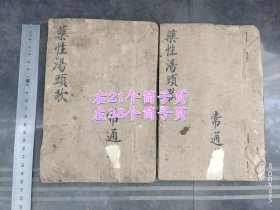 藥性湯頭歌
常通
藥性湯頭歌
常通
右21个筒子页
左38个筒子页